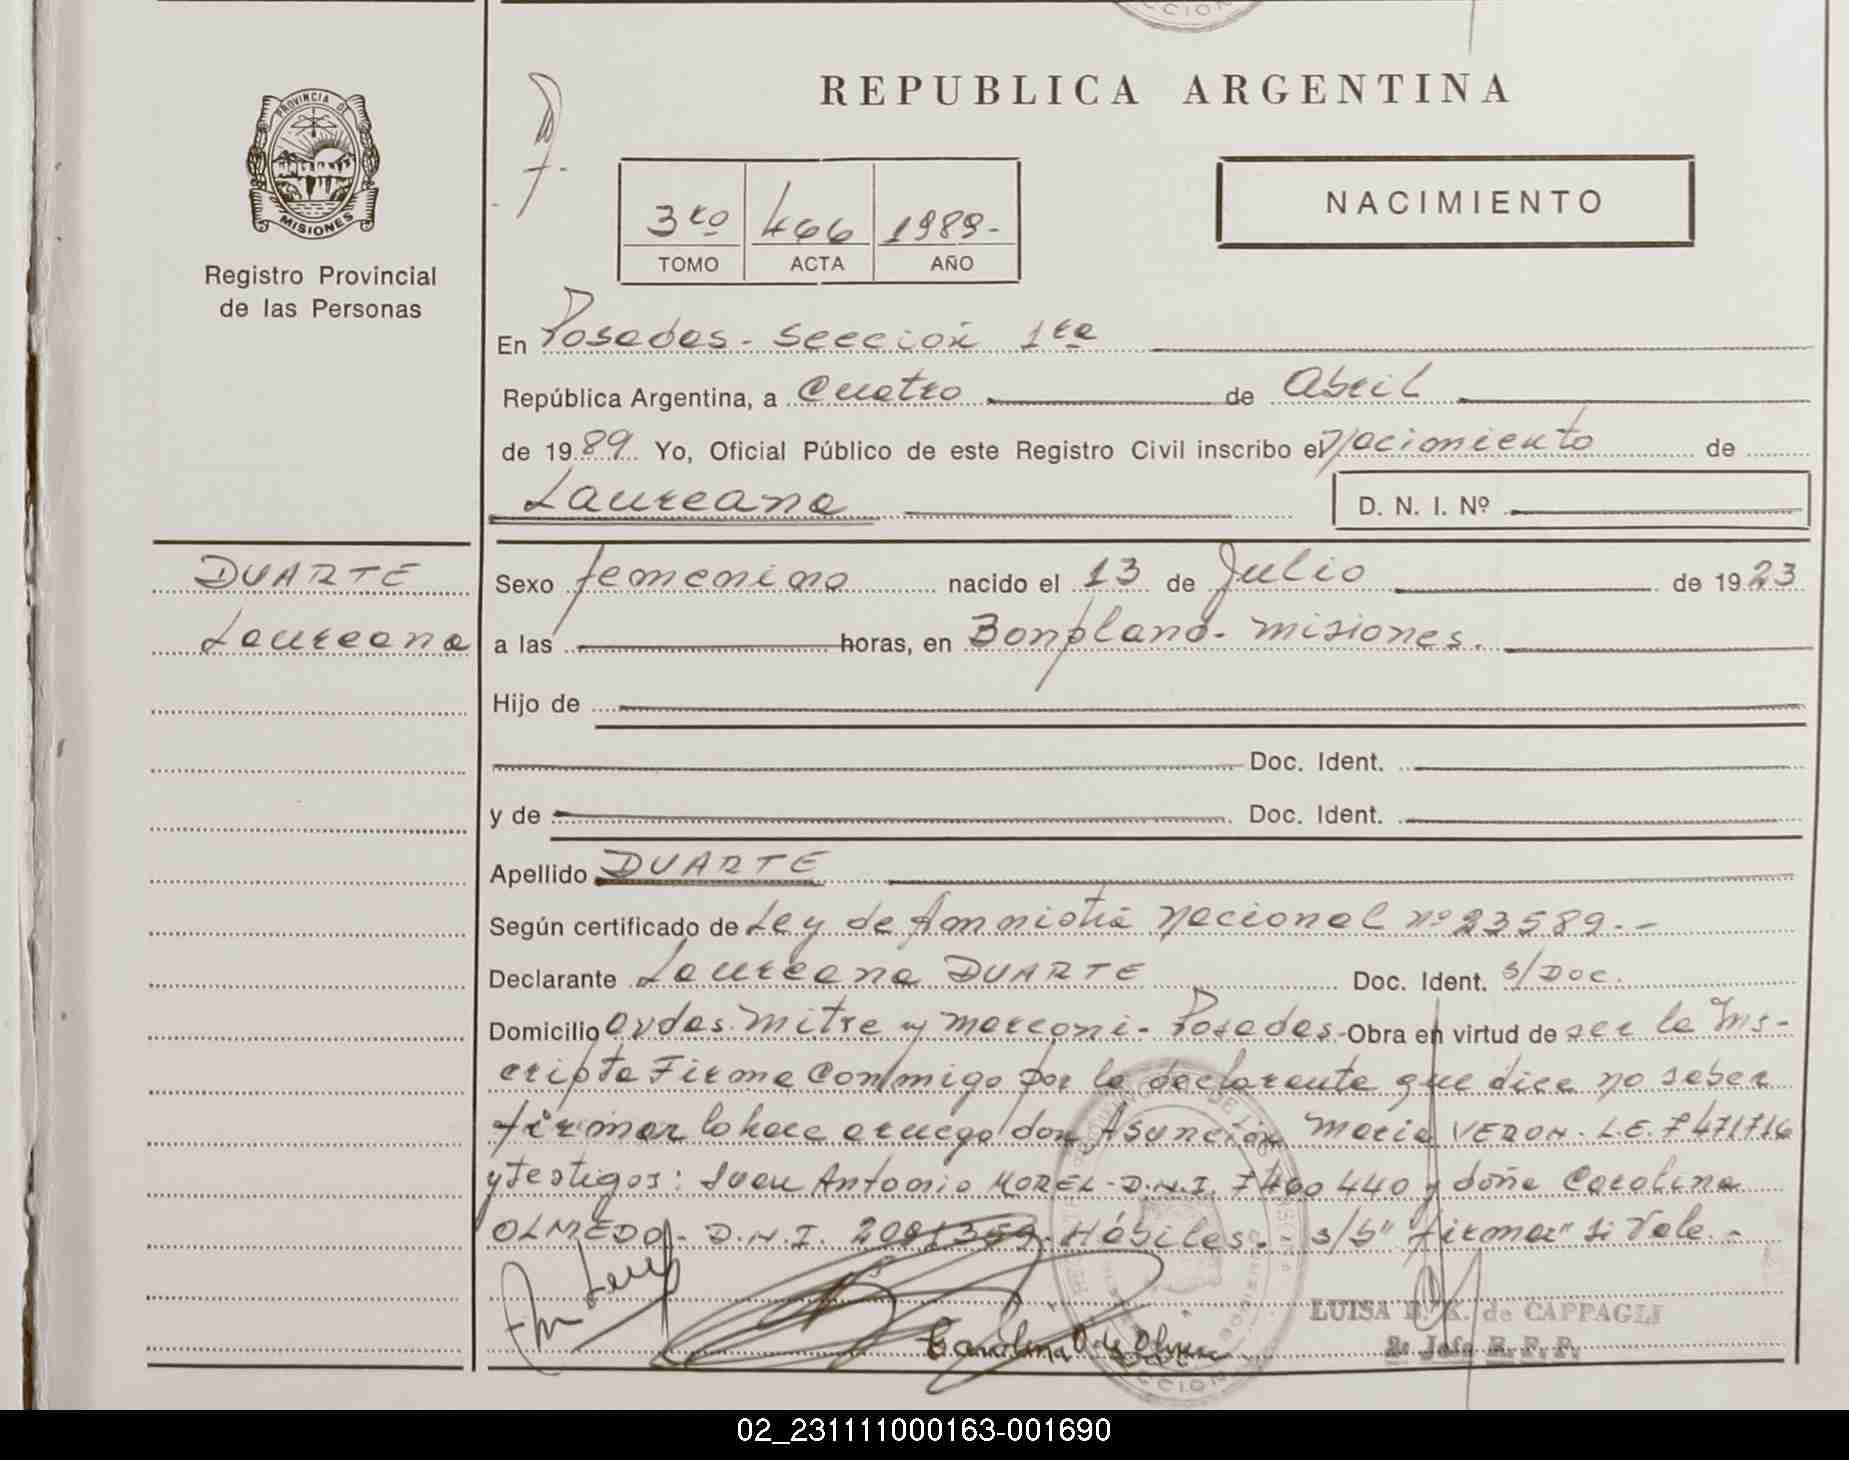 REPUBLICA ARGENTINA
PROVINCIA DE
MISIONES
Registro Provincial
de las Personas
3ro 466 1989.-
TOMO ACTA AÑO
NACIMIENTO
En Posadas - Sección 1ra
República Argentina, a Cuatro de Abril
de 1989. Yo, Oficial Público de este Registro Civil inscribo el Nacimiento de
Laureana D. N. I. Nº
DUARTE
Laureana
Sexo femenino nacido el 13 de Julio de 1923
a las horas, en Bonpland - Misiones.
Hijo de
Doc. Ident.
y de Doc. Ident.
Apellido DUARTE
Según certificado de Ley de Amnistia Nacional nº 23589.-
Declarante Laureana DUARTE Doc. Ident. s/Doc.
Domicilio Avdas. Mitre y Marconi - Posadas - Obra en virtud de ser la Ins-
cripta Firma Conmigo por la declarante que dice no saber
firmar lo hace a ruego don Asunción Maria VERON - L.E. 7471716
y Testigos: Juan Antonio MOREL - D.N.I. 7460440 y doña Carolina
OLMEDO - D.N.I. 2091359. Hábiles.- s/b "firmar" si Vale.-
Carolina O de
LUISA de CAPPAGLI
2º Jefe R. P. P.
02_231111000163-001690